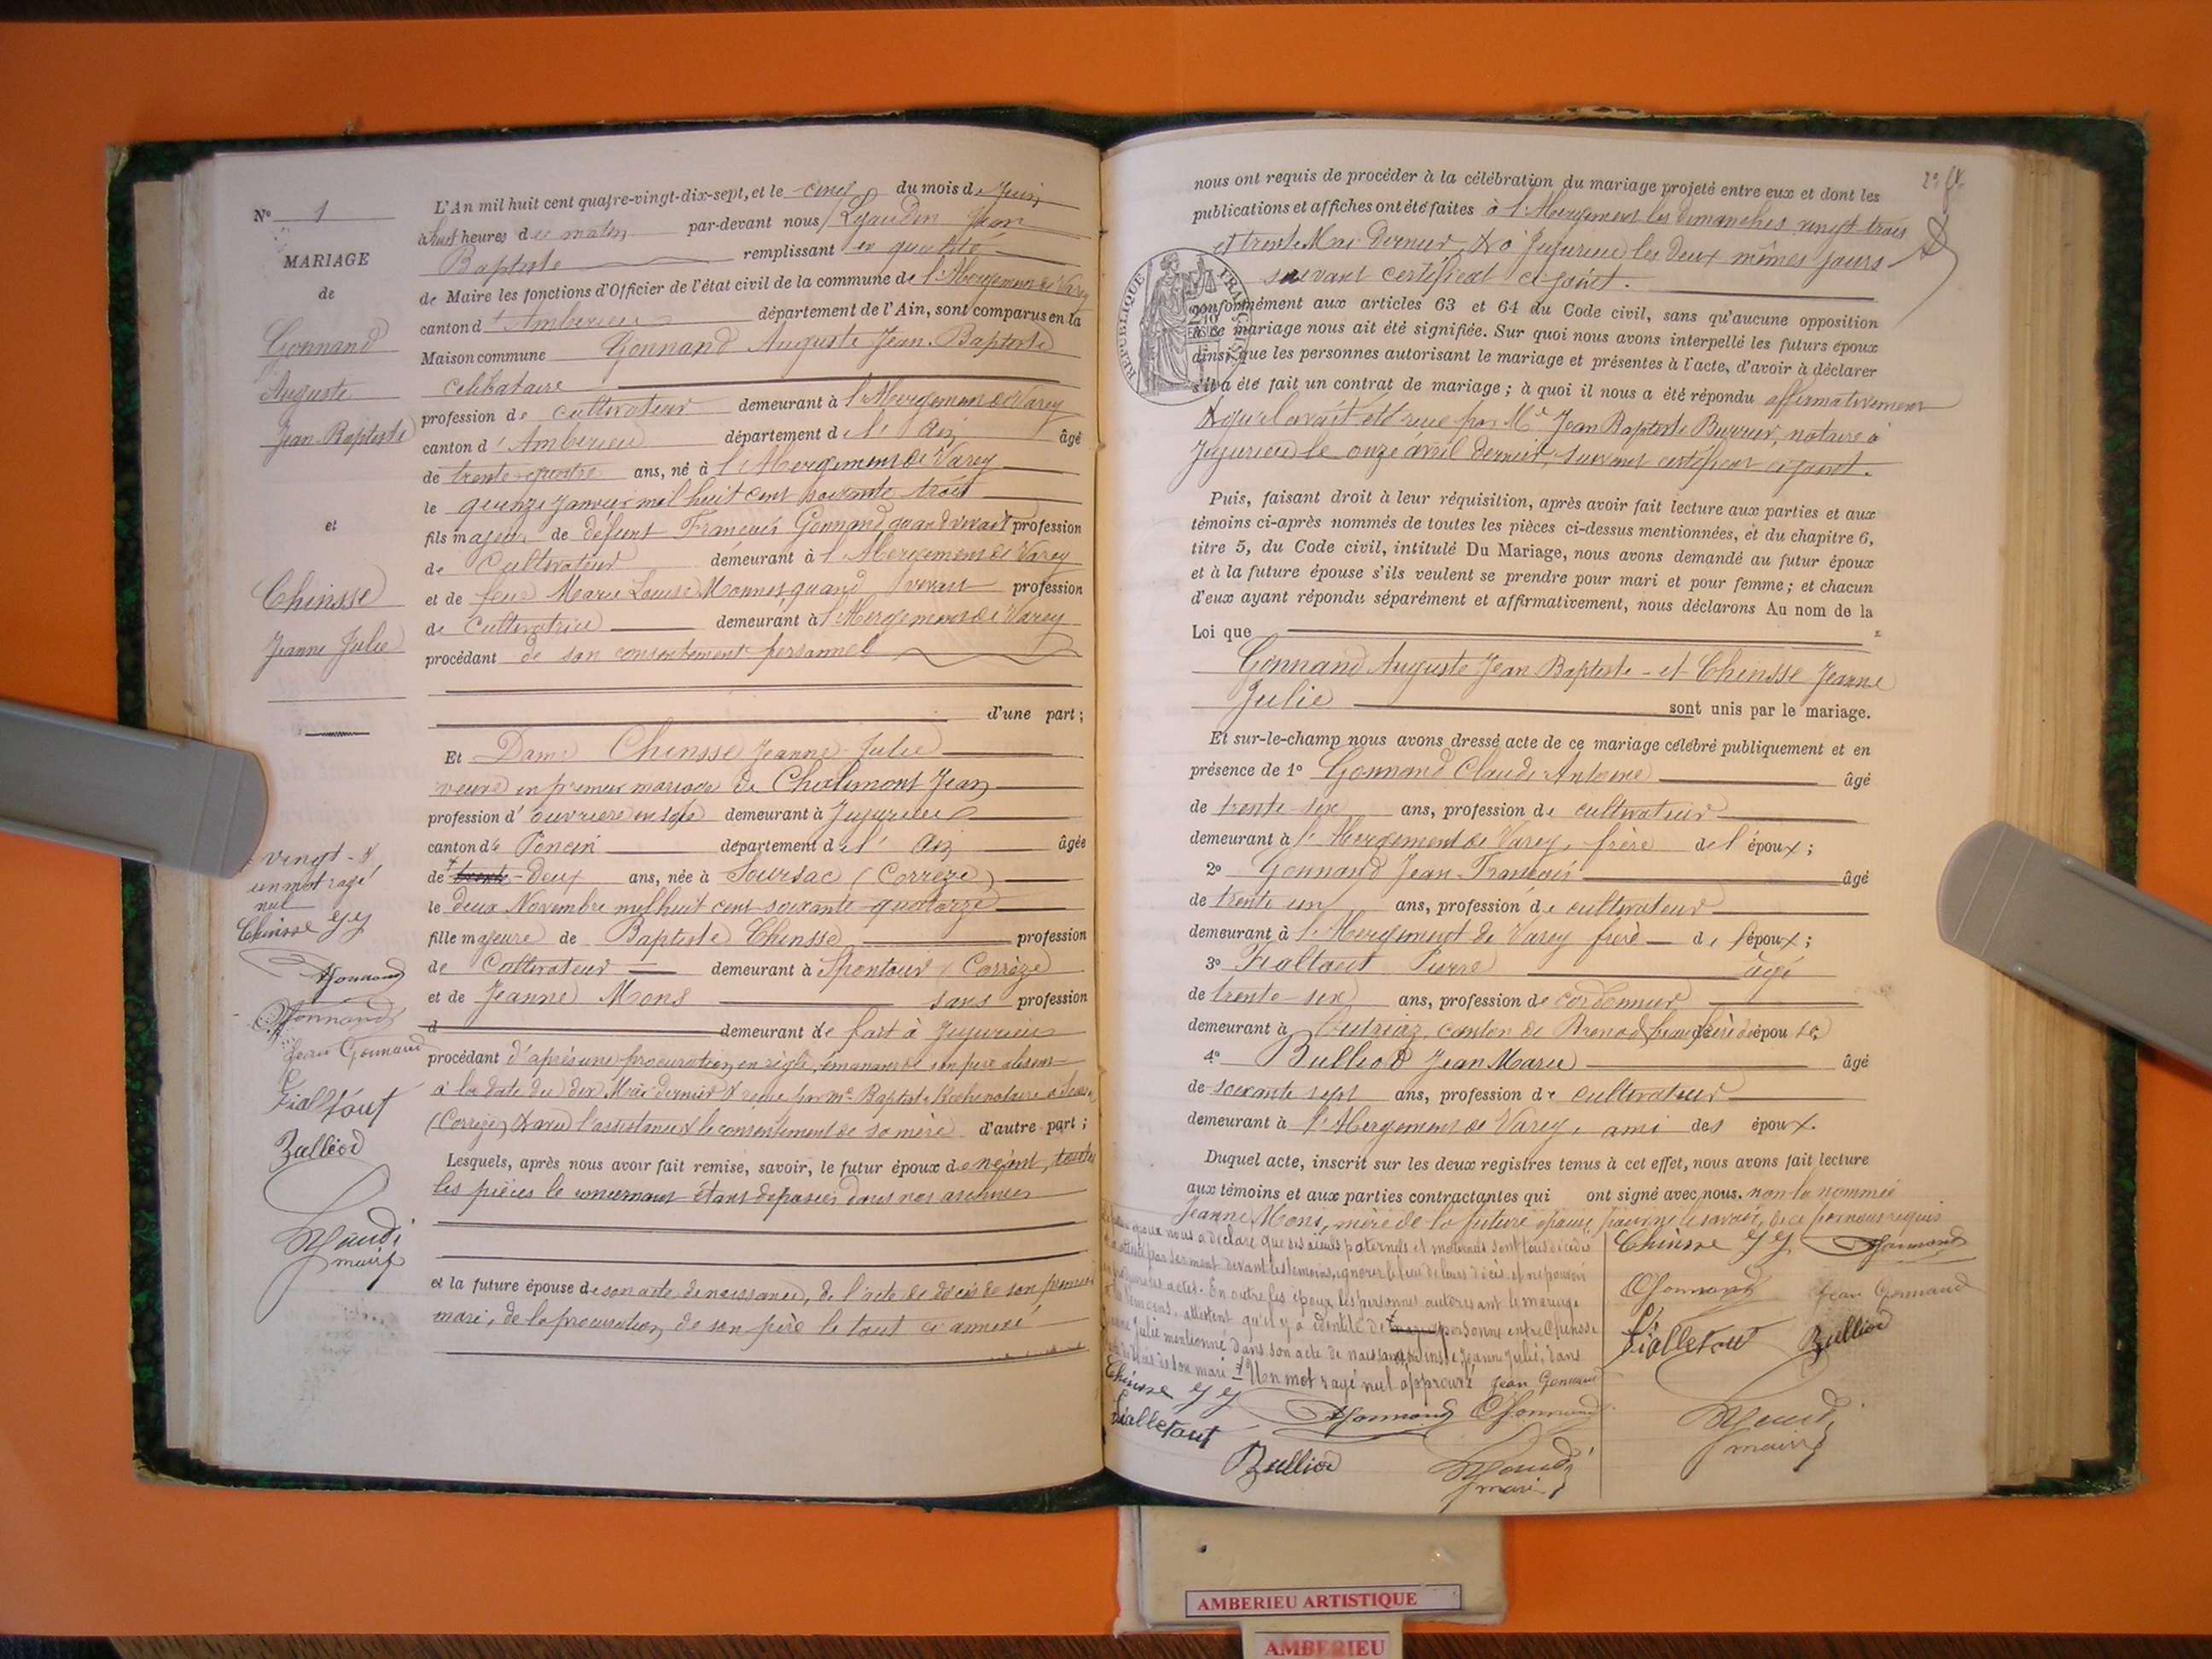 N° 1
MARIAGE
de
Gonnand
Auguste
Jean Baptiste
et
Chinsse
Jeanne Julie
vingt-
un mot rayé
nul
Chinsse JJ
Gonnand
Gonnand
Jean Gonnand
Fialtout
Bulliod
maire
L'An mil huit cent quatre-vingt-dix-sept, et le cinq du mois de Juin
à huit heures du matin par-devant nous Jean
Baptiste remplissant en qualité
de Maire les fonctions d'Officier de l'état civil de la commune de l'Abergement de Varey
canton d'Ambérieu département de l'Ain, sont comparus en la
Maison commune Gonnand Auguste Jean-Baptiste
célibataire
profession de cultivateur demeurant à l'Abergement de Varey
canton d'Ambérieu département de l'Ain âgé
de trente-quatre ans, né à l'Abergement de Varey
le quinze janvier mil huit cent soixante trois
fils majeur de défunt François Gonnand quand vivait profession
de Cultivateur demeurant à l'Abergement de Varey
et de feue Marie Louise Monnet quand vivait profession
de Cultivatrice demeurant à l'Abergement de Varey
procédant de son consentement personnel
d'une part;
Et Dame Chinsse Jeanne Julie
veuve en premier mariage de Chalimont Jean
profession d'ouvrière en soie demeurant à Jujurieux
canton de Poncin département de l'Ain âgée
de trente-deux ans, née à Soursac (Corrèze)
le deux Novembre mil huit cent soixante quatorze
fille majeure de Baptiste Chinsse profession
de Cultivateur demeurant à Spontour (Corrèze)
et de Jeanne Mons sans profession
d demeurant de fait à Jujurieux
procédant d'après une procuration en règle, émanant de son père absent
à la date du dix Mai dernier & reçue par Me Baptiste notaire à
(Corrèze) & avec l'assistance & le consentement de sa mère d'autre part;
Lesquels, après nous avoir fait remise, savoir, le futur époux de néant, toutes
les pièces le concernant étant déposées dans nos archives
et la future épouse de son acte de naissance, de l'acte de décès de son premier
mari, de la procuration de son père le tout ci annexé
nous ont requis de procéder à la célébration du mariage projeté entre eux et dont les
publications et affiches ont été faites à l'Abergement les dimanches vingt-trois
et trente Mai dernier, & à Jujurieux les deux mêmes jours
suivant certificat ci-joint.
RÉPUBLIQUE FRANÇAISE
conformément aux articles 63 et 64 du Code civil, sans qu'aucune opposition
à ce mariage nous ait été signifiée. Sur quoi nous avons interpellé les futurs époux
ainsi que les personnes autorisant le mariage et présentes à l'acte, d'avoir à déclarer
s'il a été fait un contrat de mariage; à quoi il nous a été répondu affirmativement
& qu'il avait été reçu par Me Jean Baptiste notaire à
Jujurieux le onze avril dernier, suivant certificat ci-joint.
Puis, faisant droit à leur réquisition, après avoir fait lecture aux parties et aux
témoins ci-après nommés de toutes les pièces ci-dessus mentionnées, et du chapitre 6,
titre 5, du Code civil, intitulé Du Mariage, nous avons demandé au futur époux
et à la future épouse s'ils veulent se prendre pour mari et pour femme; et chacun
d'eux ayant répondu séparément et affirmativement, nous déclarons Au nom de la
Loi que
Gonnand Auguste Jean Baptiste - et Chinsse Jeanne
Julie sont unis par le mariage.
Et sur-le-champ nous avons dressé acte de ce mariage célébré publiquement et en
présence de 1° Gonnand Claude Antoine âgé
de trente-six ans, profession de cultivateur
demeurant à l'Abergement de Varey, frère de l'époux;
2° Gonnand Jean-François âgé
de trente un ans, profession de cultivateur
demeurant à l'Abergement de Varey frère de l'époux;
3° Fialtout Pierre âgé
de trente-six ans, profession de cordonnier
demeurant à canton de Brenod, beau frère de épouse,
4° Bulliod Jean Marie âgé
de soixante sept ans, profession de cultivateur
demeurant à l'Abergement de Varey, ami des époux.
Duquel acte, inscrit sur les deux registres tenus à cet effet, nous avons fait lecture
aux témoins et aux parties contractantes qui ont signé avec nous, non la nommée
Jeanne Mons, mère de la future épouse pour ne le savoir, de ce par nous requis
époux nous a déclaré que ses aïeuls paternels et maternels sont tous décédés
par serment devant les témoins, ignorer le lieu de leurs décès et ne pouvoir
actes. En outre, les époux, les personnes autorisant le mariage
témoins, attestent qu'il y a identité de personne entre Chinsse
Julie mentionné dans son acte de naissance, & Chinsse Jeanne Julie, dans
décès de son mari. Un mot rayé nul approuvé Jean Gonnand
Chinsse JJ Gonnand Gonnand
Fialletout
Bulliod
maire
Chinsse JJ Gonnand
Gonnand Jean Gonnand
Fialletout Bulliod
maire
AMBERIEU ARTISTIQUE
AMBERIEU